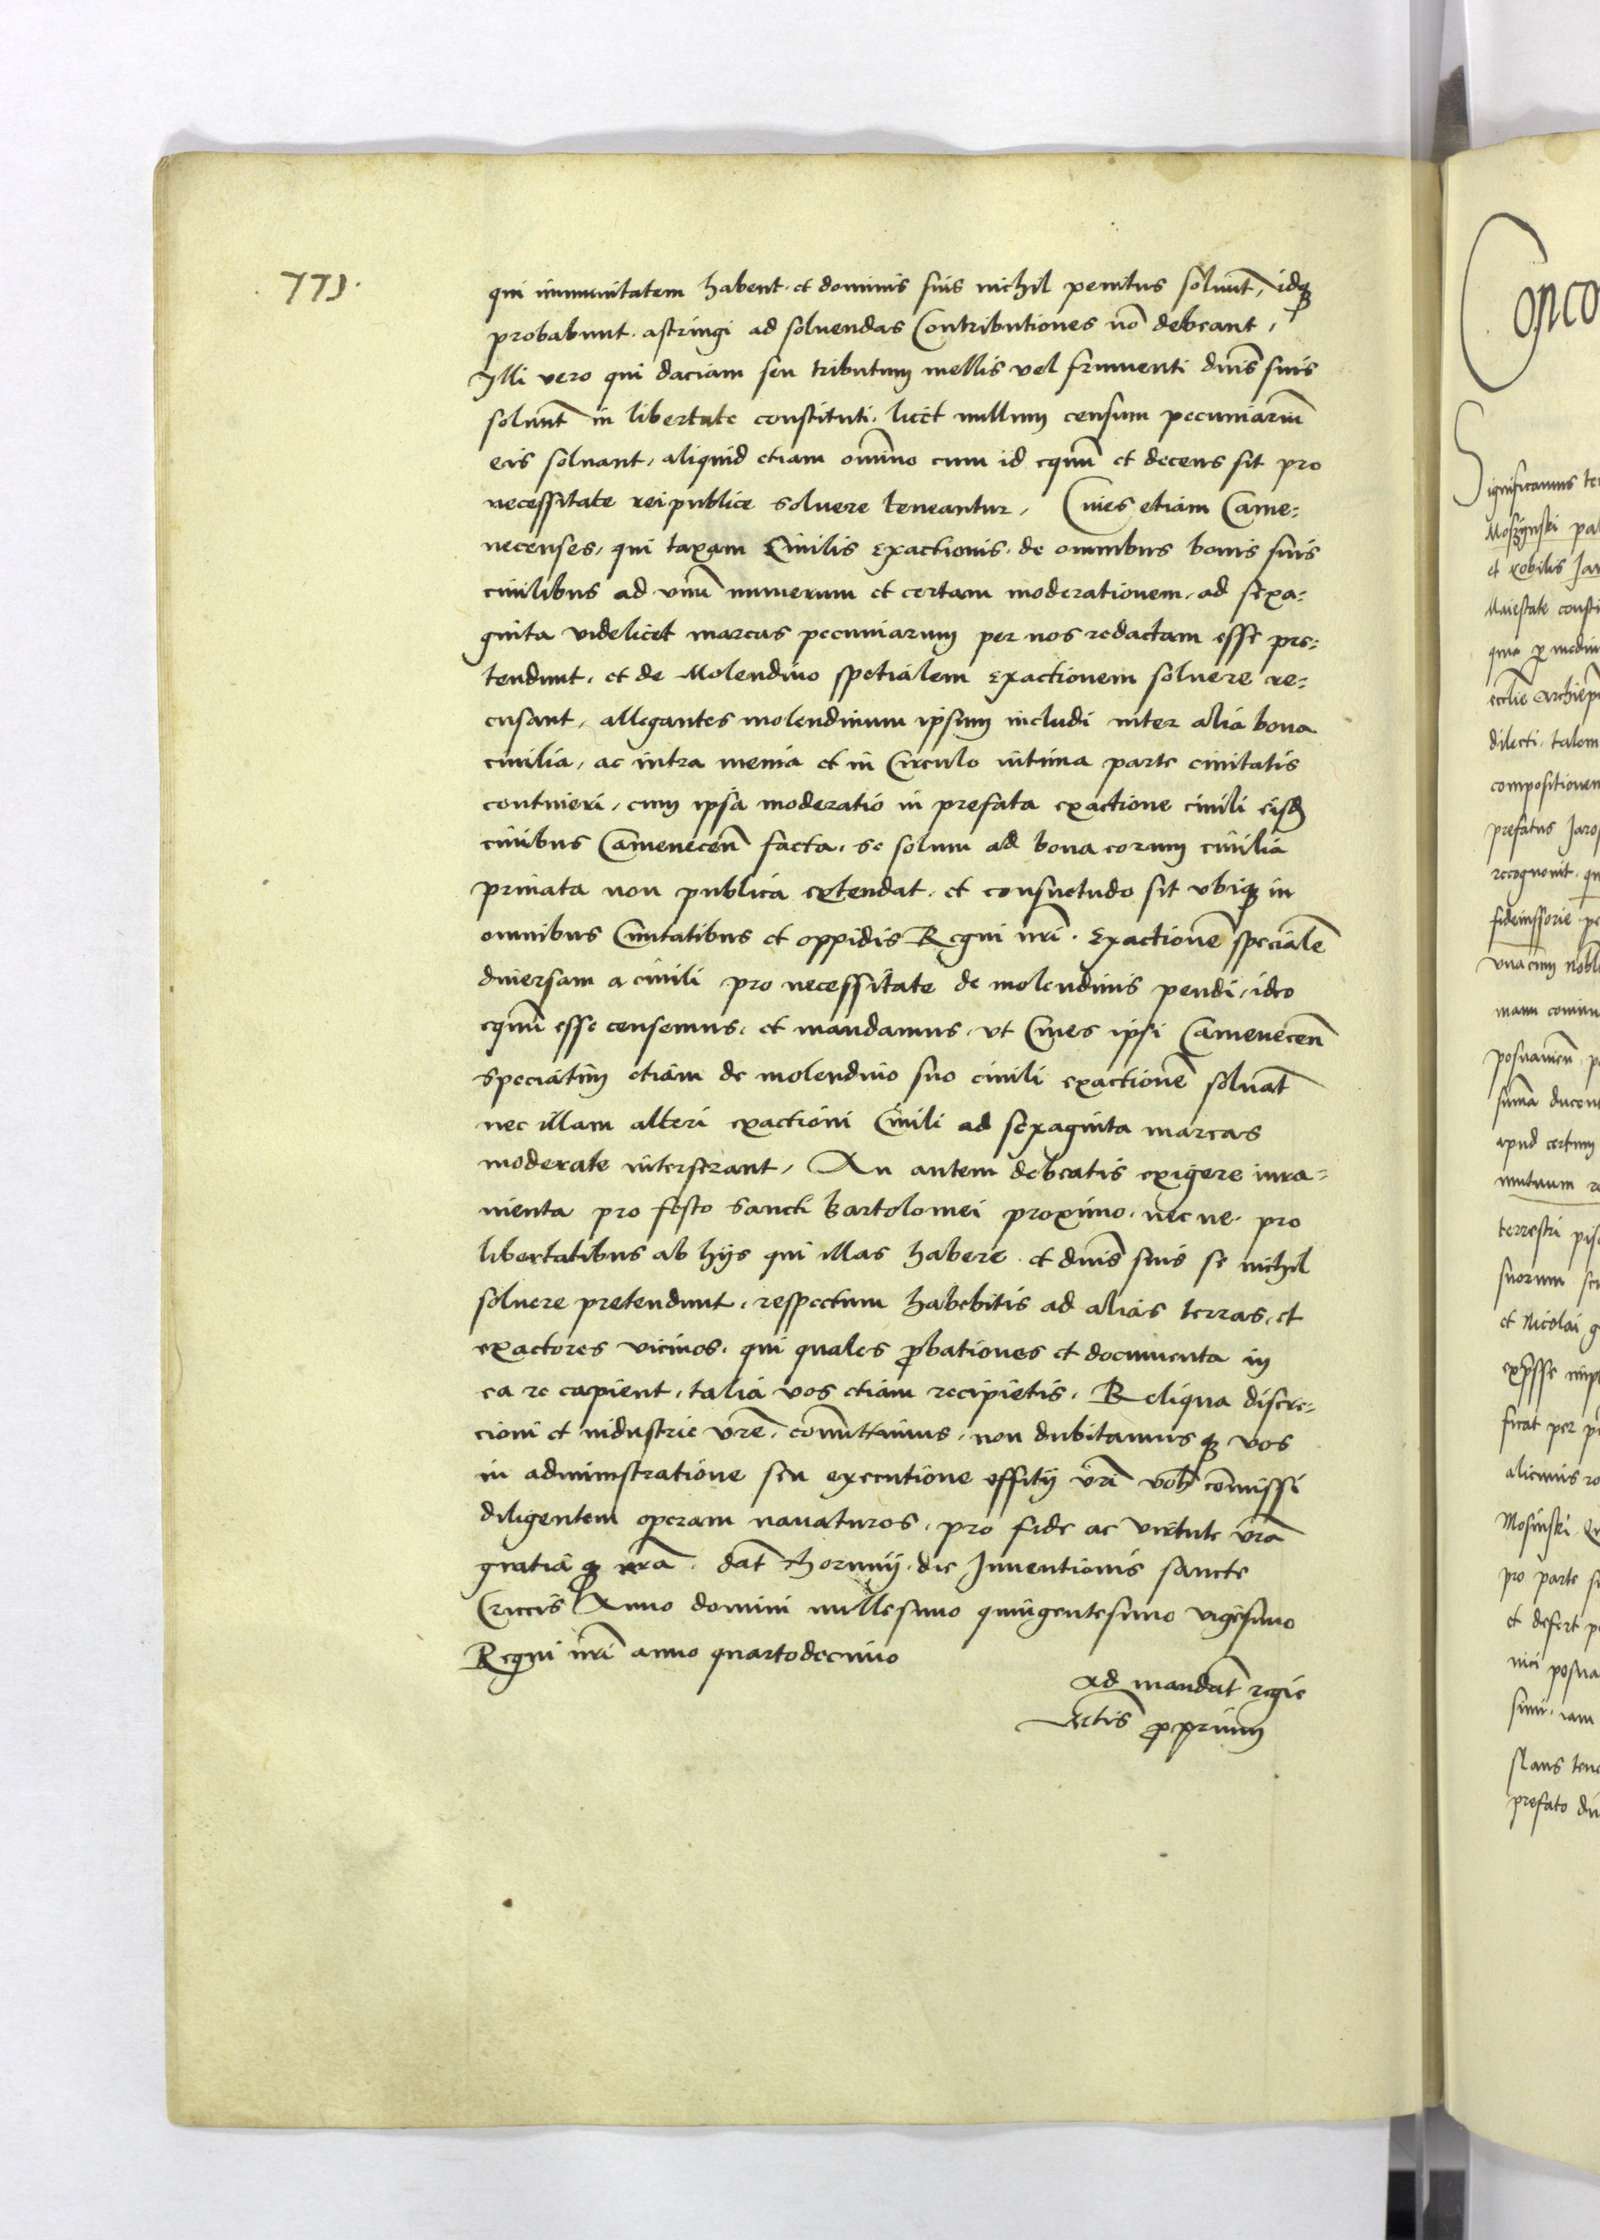 771.
qui immunitatem habent. et dominis suis nichil penitus soluũt, idq3
probabunt. astringi ad soluendas Contributiones nõ debeant,
Illi vero qui daciam seu tributum mellis vel frumenti dnĩs suis
soluũt in libertate constituti. licet nullum censum pecuniariũ
eis soluant, aliquid etiam om̃ino cum id equũ et decens sit pro
necessitate reipublice soluere teneantur, Ciues etiam Came:
necenses, qui taxam Ciuilis Exactionis. de omnibus bonis suis
ciuilibus ad vnũ numerum et certam moderationem, ad sexa:
ginta videlicet marcas pecuniarum per nos redactam esse pre:
tendunt. et de Molendino spetialem Exactionem soluere re:
cusant, allegantes molendinum ipsum includi inter alia bona
ciuilia, ac intra menia et in Circulo intima parte ciuitatis
contineri, cum ipsa moderatio in prefata exactione ciuili eisd
ciuibus Camenecen̄ facta, se solum ad bona eorum ciuilia
priuata non publica extendat. et consuetudo sit vbiq3 in
omnibus Ciuitatibus et oppidis Regni nrĩ. Exactionē specialē
diuersam a ciuili pro necessitate de molendinis pendi, ideo
equũ esse censemus. et mandamus, vt Ciues ipsi Camenecen̄
speciatim etiam de molendino suo ciuili exactionē soluāt
nec illam alteri exactioni Ciuili ad sexaginta marcas
moderate interserant, An autem debeatis exigere iura:
menta pro festo Sancti Bartolomei proximo. nec ne. pro
libertatibus ab hijs qui illas habere. et dnĩs suis se nichil
soluere pretendunt, respectum habebitis ad alias terras, et
exactores vicinos. qui quales ꝓbationes et documenta in
ea re capient, talia vos etiam recipietis. Reliqua discre:
cioni et industrie vrē. cōmittimus, non dubitamus q3 vos
in administratione seu executione offitij vrĩ vob cōmissi
diligentem operam nauaturos. pro fide ac virtute vrā
gratiaq3 nrā. dat̄ Thorunij. die Inuentionis sancte
Crucis Anno domini millesimo quingentesimo vigesimo
Regni nrĩ anno quartodecimo
Ad mandat̄ regie
Mtis ꝓprium
Conco
Significamus te
Moszynski pal
et nobilis Jar
Maiestate consti
quia ꝑ mediu
ecclie Archiep
dilecti. talem
compositionem
prefatus Jaro
recognouit. qu
fideiussorie pe
vnacum nobl
manu coniun
posnanien̄. p
sum̄a ducent
apud certum
mutuum re
terrestri pis
suorum se
et Nicolai g
exp̄sse imp
ficat per p
alicuius ro
Mosinski. Qu
pro parte s
et defert p
nici posna
simi. iam
slaus ten
prefato dn